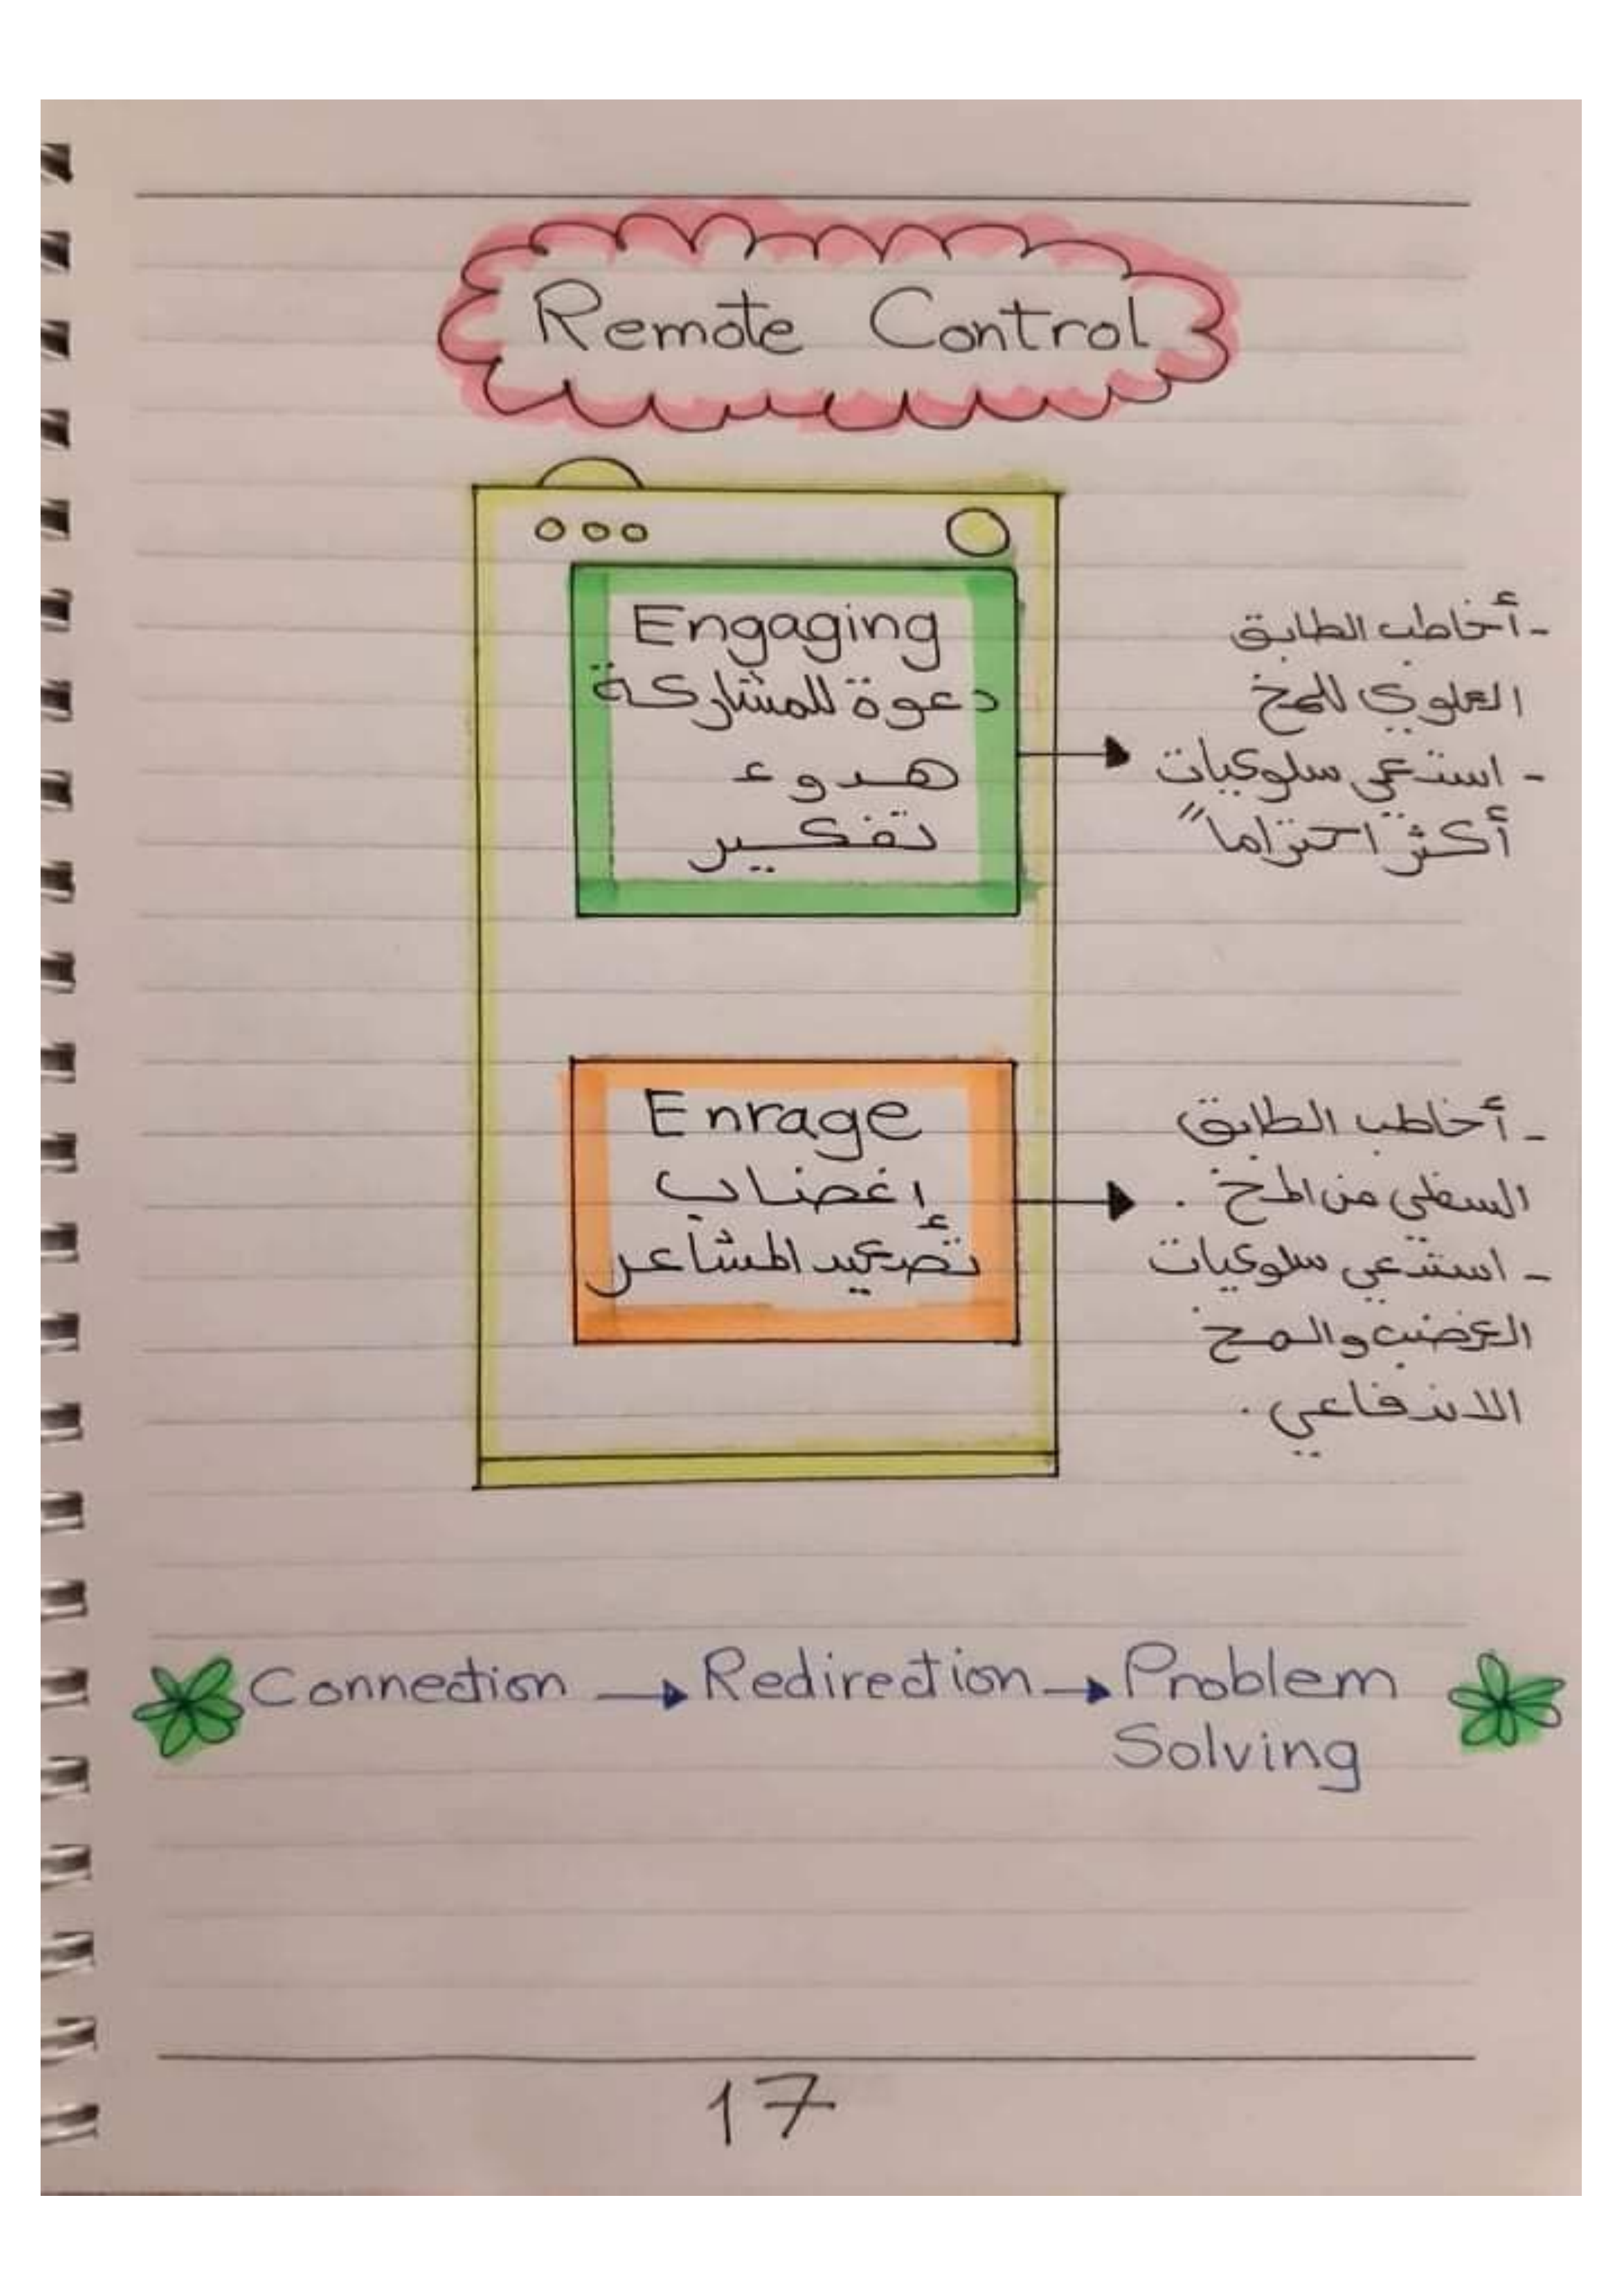 Remote Control
Engaging
دعوة للمشاركة
هدوء
تفكير
- أخاطب الطابق
العلوي للمخ
- استدعي سلوكيات
أكثر احتراماً
Enrage
إغضاب
تصعيد المشاعر
- أخاطب الطابق
السفلي من المخ .
- استدعي سلوكيات
الغضب والمخ
الاندفاعي .
Connection → Redirection → Problem
Solving
17